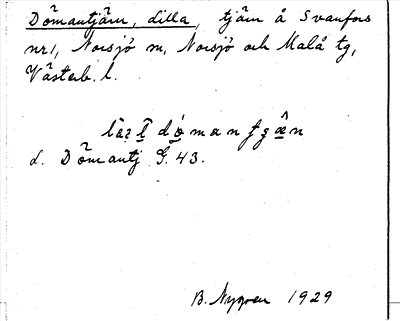 Dömantjärn, lilla, tjärn å Svanfors
nr 1, Norsjö sn, Norsjö och Malå tg,
Västerb. l.
d. Dömantj G. 43.
B. Nygren 1929